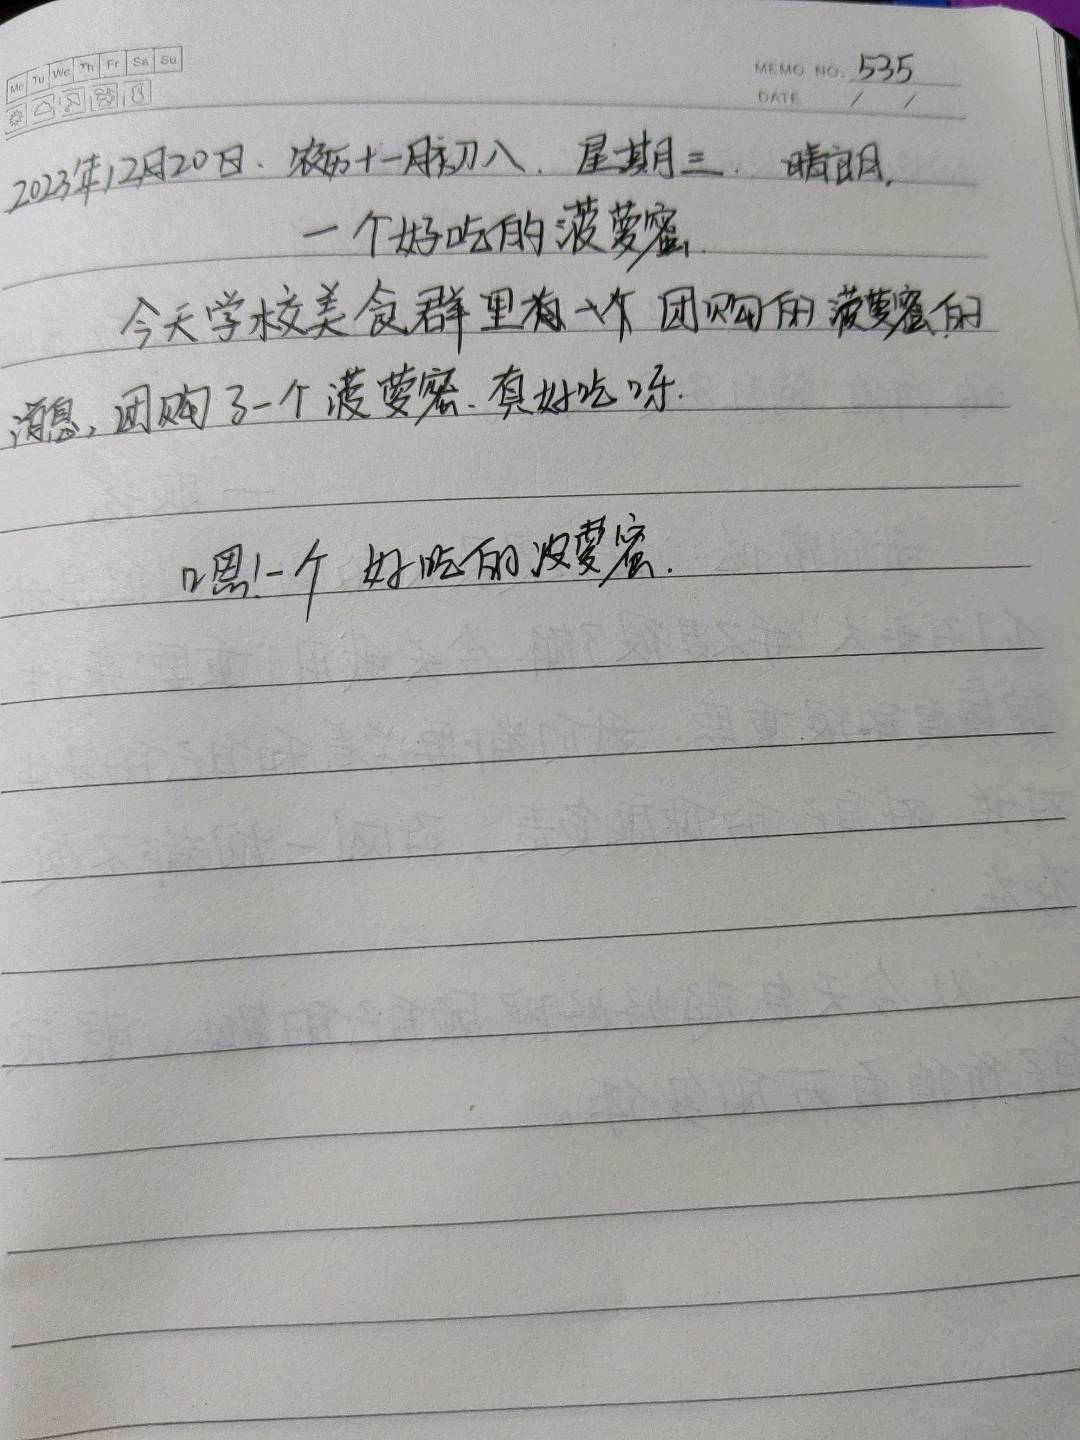 Mo Tu We Th Fr Sa Su
MEMO NO. 535
DATE / /
2023年12月20日. 农历十一月初八. 星期三. 晴朗.
一个好吃的菠萝蜜.
今天学校美食群里有一个团购的菠萝蜜的
消息,团购了一个菠萝蜜.真好吃呀.
嗯!一个好吃的波萝蜜.